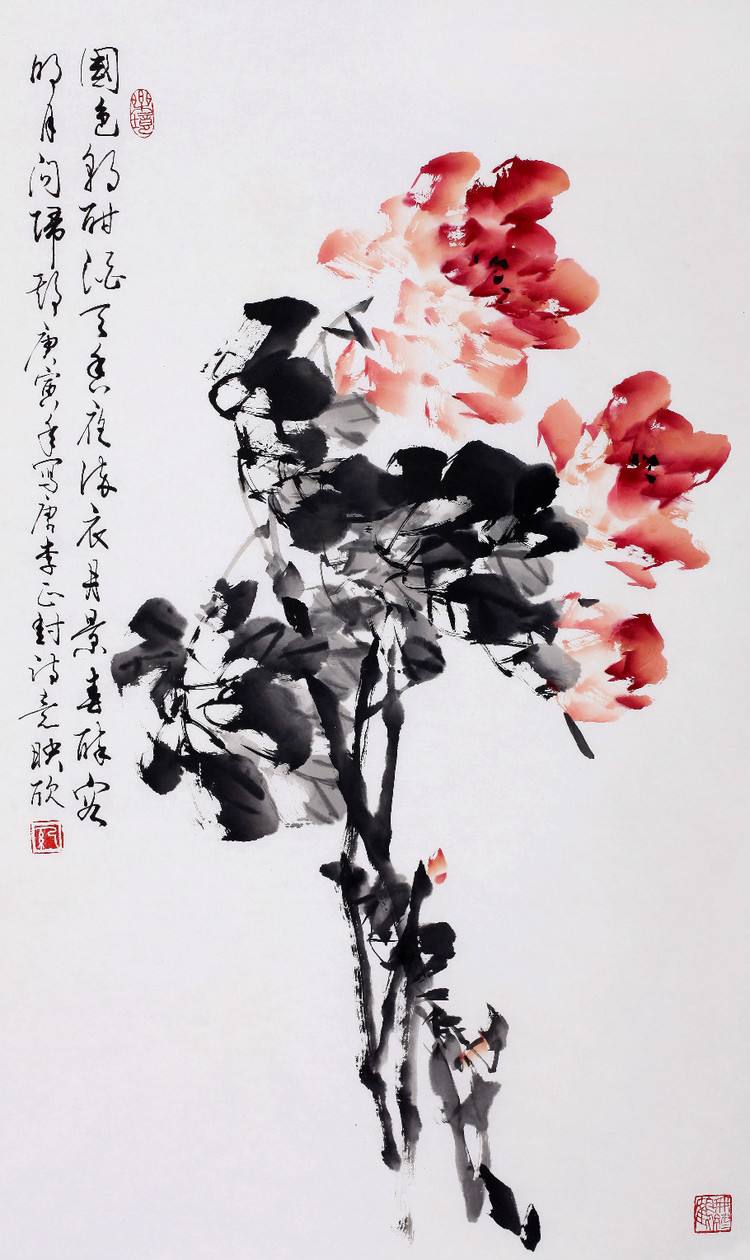 國色朝酣酒天香夜染衣丹景春醉容
明月问歸期庚寅年写唐李正封詩意映欣